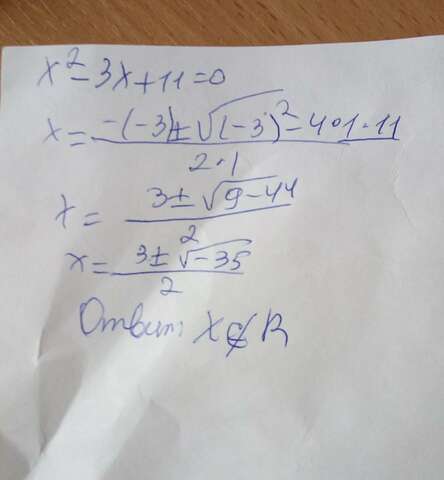 x² - 3x + 11 = 0
x = (-(-3) ± √((-3)² - 4·1·11)) / (2·1)
x = (3 ± √(9 - 44)) / 2
x = (3 ± √(-35)) / 2
Ответ: x ∉ R